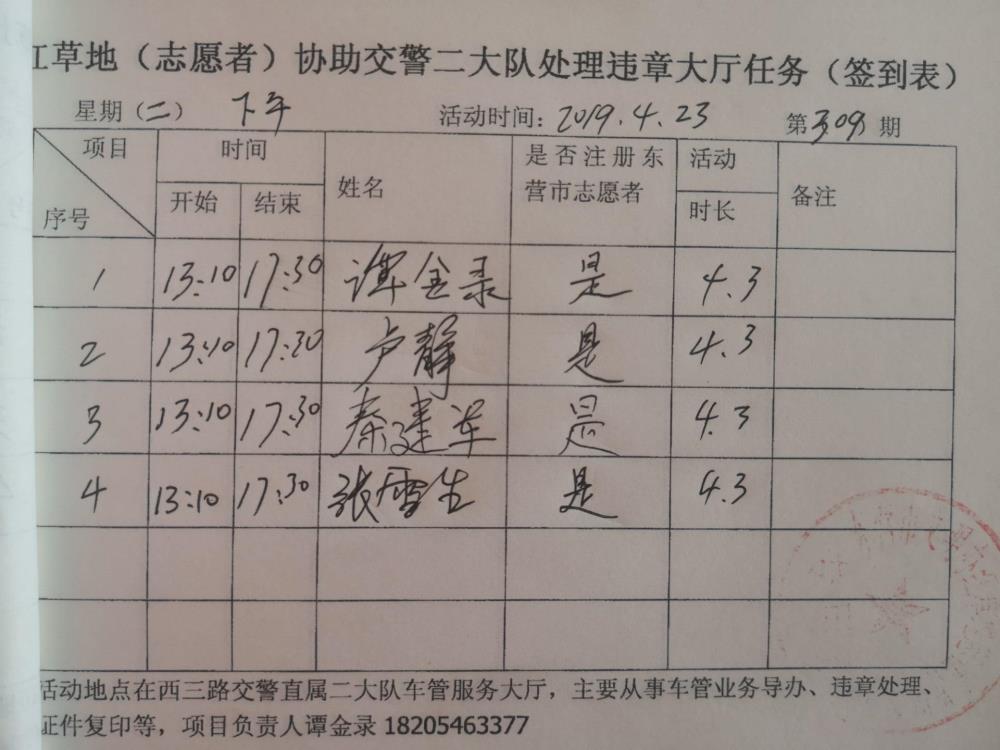 红草地（志愿者）协助交警二大队处理违章大厅任务（签到表）
星期（二） 下午 活动时间：2019.4.23 第309期
项目 时间 姓名 是否注册东营市志愿者 活动时长 备注
序号 开始 结束
1 13:10 17:30 谭金录 是 4.3
2 13:10 17:30 卢静 是 4.3
3 13:10 17:30 秦建军 是 4.3
4 13:10 17:30 张雪生 是 4.3
活动地点在西三路交警直属二大队车管服务大厅，主要从事车管业务导办、违章处理、
证件复印等，项目负责人谭金录 18205463377